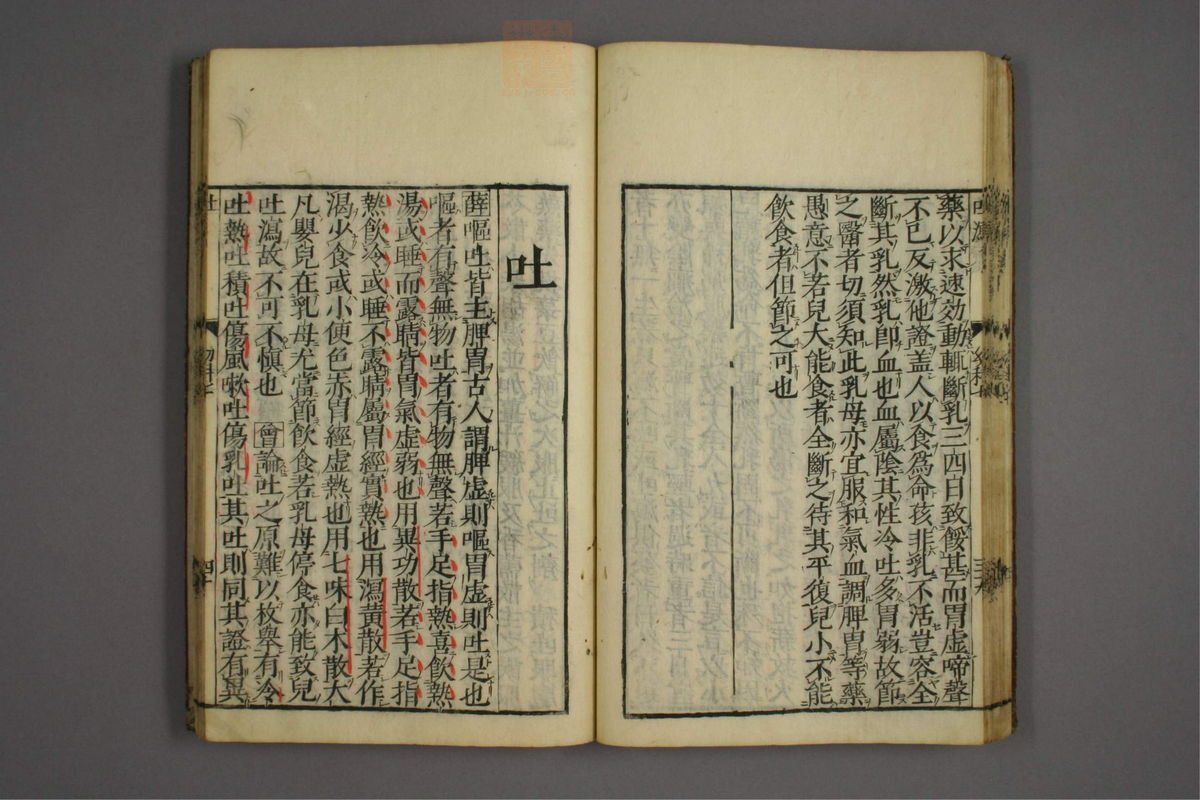 藥以求速効動輒斷乳三四日致餒甚而胃虛啼聲
不已反激他證盖人以食爲命孩非乳不活豈容全
斷其乳然乳即血也血屬陰其性冷吐多胃弱故節
之醫者切須知此乳母亦宜服和氣血調脾胃等藥
愚意不若兒大能食者全斷之待其平復兒小不能
飲食者但節之可也
吐
薛嘔吐皆主脾胃古人謂脾虛則嘔胃虛則吐是也
嘔者有聲無物吐者有物無聲若手足指熱喜飲熱
湯或睡而露睛皆胃氣虛弱也用異功散若手足指
熱飲冷或睡不露睛屬胃經實熱也用瀉黃散若作
渴少食或小便色赤胃經虛熱也用七味白木散大
凡嬰兒在乳母尤當節飲食若乳母停食亦能致兒
吐瀉故不可不愼也 曾論吐之原難以枚舉有冷
吐熱吐積吐傷風嗽吐傷乳吐其吐則同其證有異